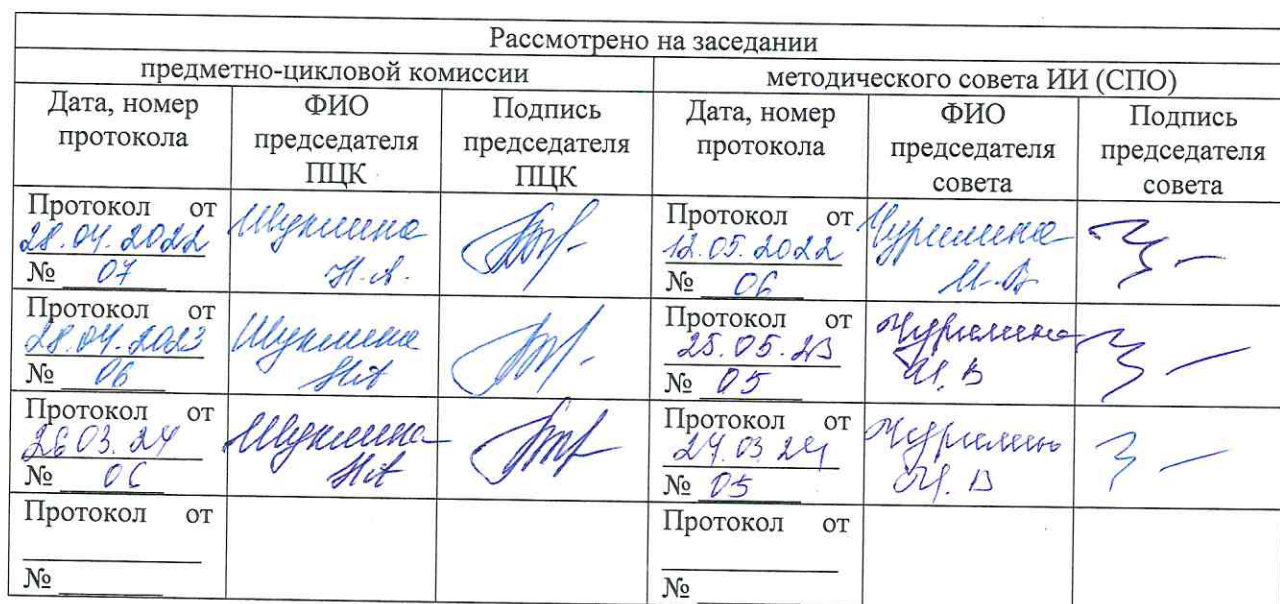 Рассмотрено на заседании
предметно-цикловой комиссии
методического совета ИИ (СПО)
Дата, номер
протокола
ФИО
председателя
ПЦК
Подпись
председателя
ПЦК
Дата, номер
протокола
ФИО
председателя
совета
Подпись
председателя
совета
Протокол от
28.04.2022
№ 07
Шуклина
Н.А.
Протокол от
12.05.2022
№ 06
Чурилина
И.В.
Протокол от
28.04.2023
№ 06
Шуклина
НА
Протокол от
25.05.23
№ 05
Чурилина
И.В
Протокол от
26 03.24
№ 06
Шуклина
НА
Протокол от
27.03 24
№ 05
Чурилина
И.В
Протокол от
№
Протокол от
№